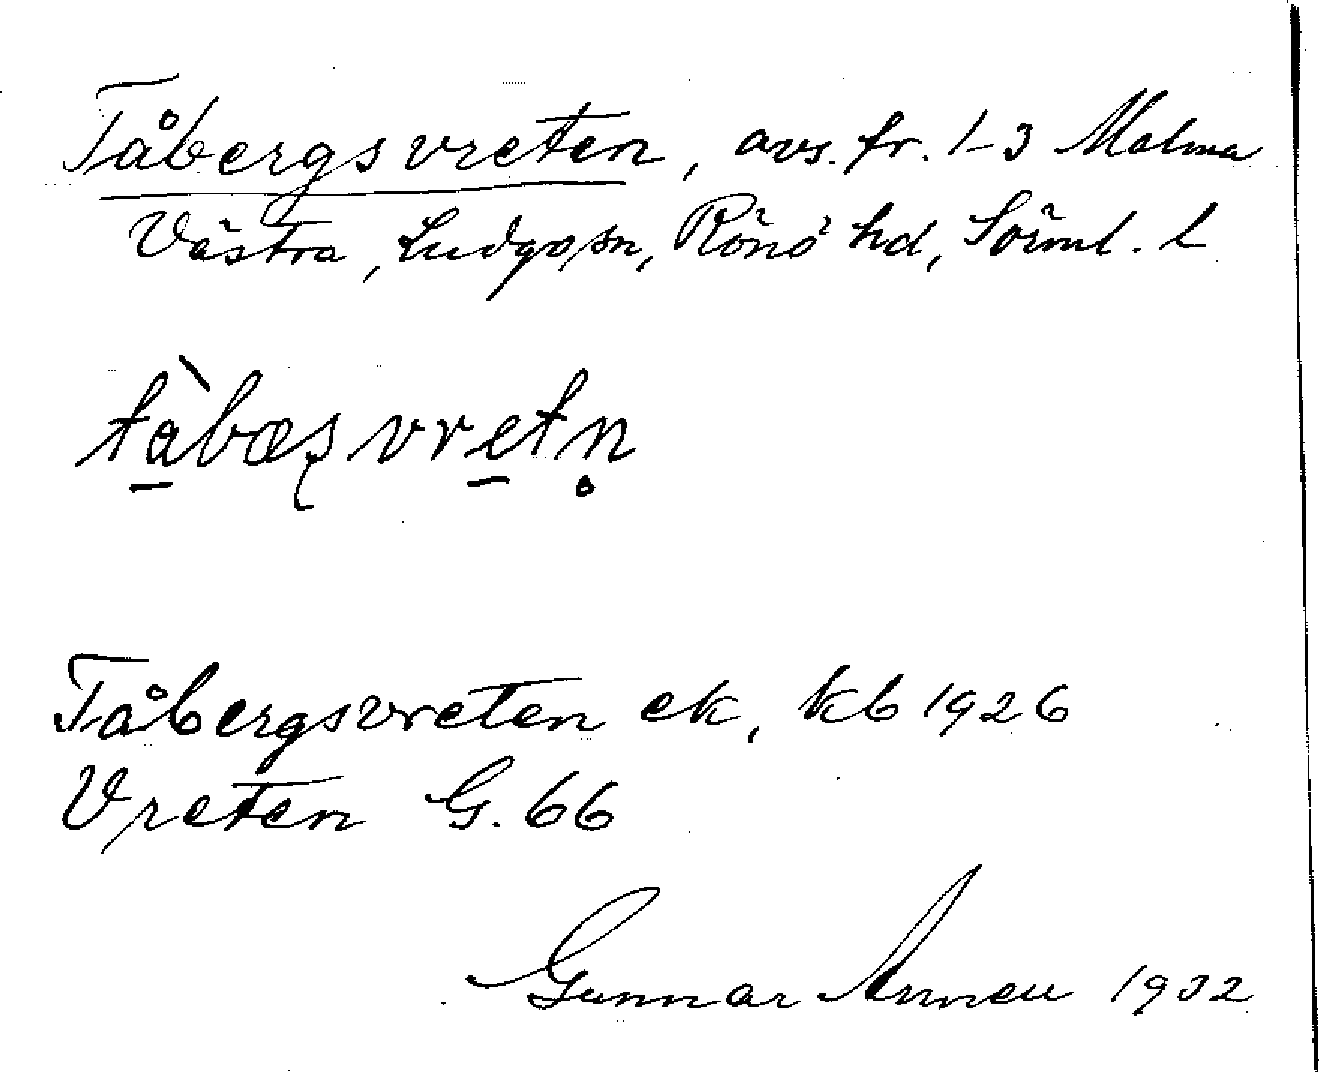 Tåbergsvreten, avs. fr. 1-3 Malma
Västra, Ludgo sn, Rönö hd, Sörml. l
tàbæʂvretn̥
Tåbergsvreten ek, kb 1926
Vreten G. 66
Gunnar 1932